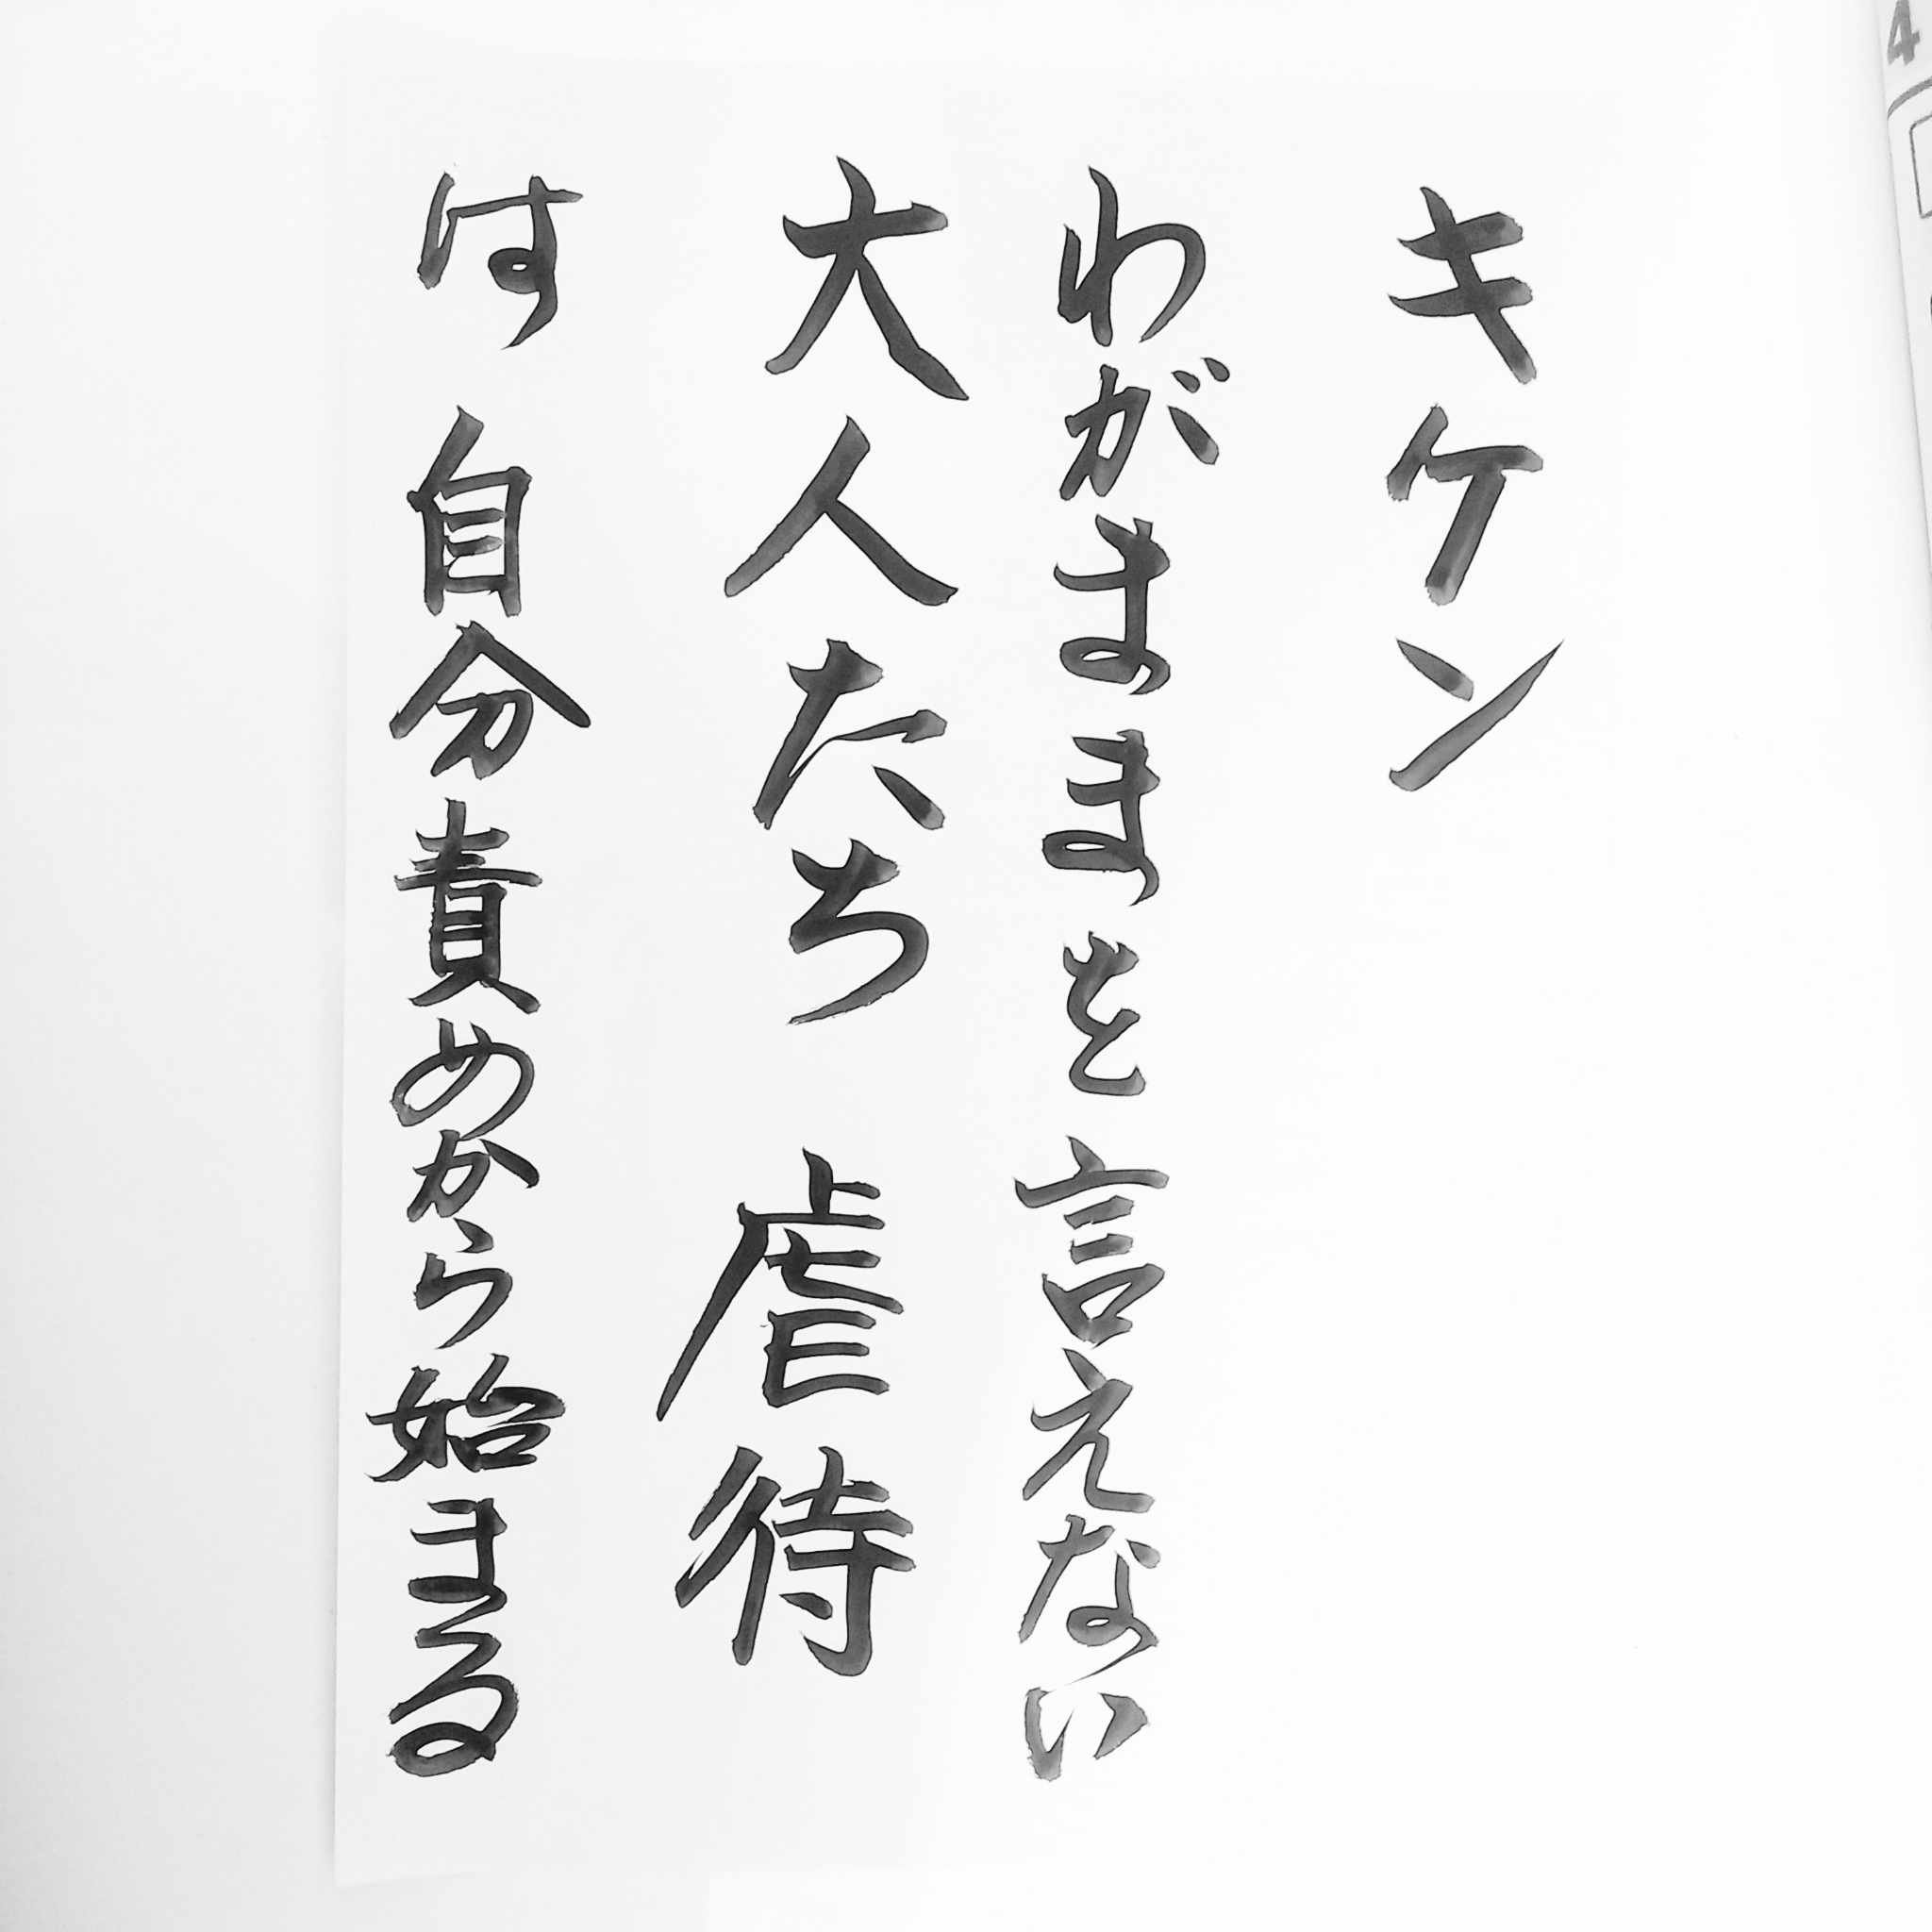 キケン
わがままを言えない
大人たち 虐待
は 自分責めから始まる
4